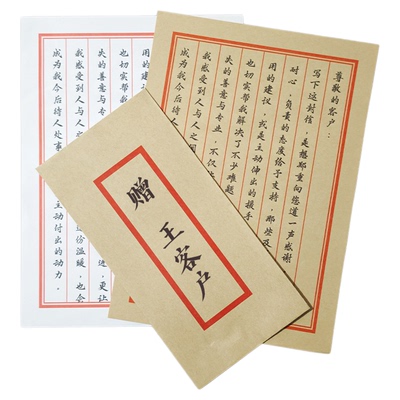 赠 王客户
尊敬的客户：
写下这封信，是想郑重向您道一声感谢
耐心，负责的态度给予支持，那些及
用的建议，或是主动伸出的援手
也切实帮我解决了不少难题
失的善意与专业，不仅
我感受到人与人之间
成为我今后待人
用的建
也切实帮我
失的善意与专业 进，更让
我感受到人与人之 份温暖，也会
成为我今后待人处事 主动付出的动力。